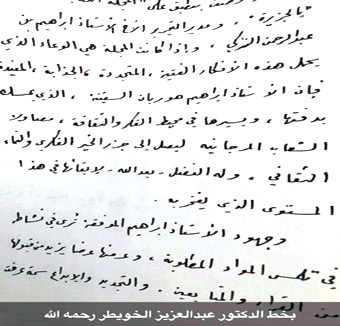 "بالجزيرة"، ومدير التحرير الأخ الأستاذ إبراهيم بن
عبدالرحمن التركي. وإذا كانت المجلة هي الوعاء الذي
يحمل هذه الأفكار الفنية، المتجددة، الجذابة، المفيدة
فإن الأستاذ إبراهيم هو ربان السفينة، الذي يمسك
بدفتها، ويسيرها في محيط الفكر والثقافة،
الشعاب المرجانية ليصل إلى جزر الخير الفكري والنماء
الثقافي، وله الفضل - بعد الله - لإبقائها في هذا
المستوى الذي يفخر به.
وجهود الأستاذ إبراهيم الموفقة: تُرى في نشاط
في تلمس المواد المطلوبة، وعرضها عرضا يزيد من قبولها
من القراء والمتابعين. والتجديد والإبداع سمة عرف
بخط الدكتور عبدالعزيز الخويطر رحمه الله